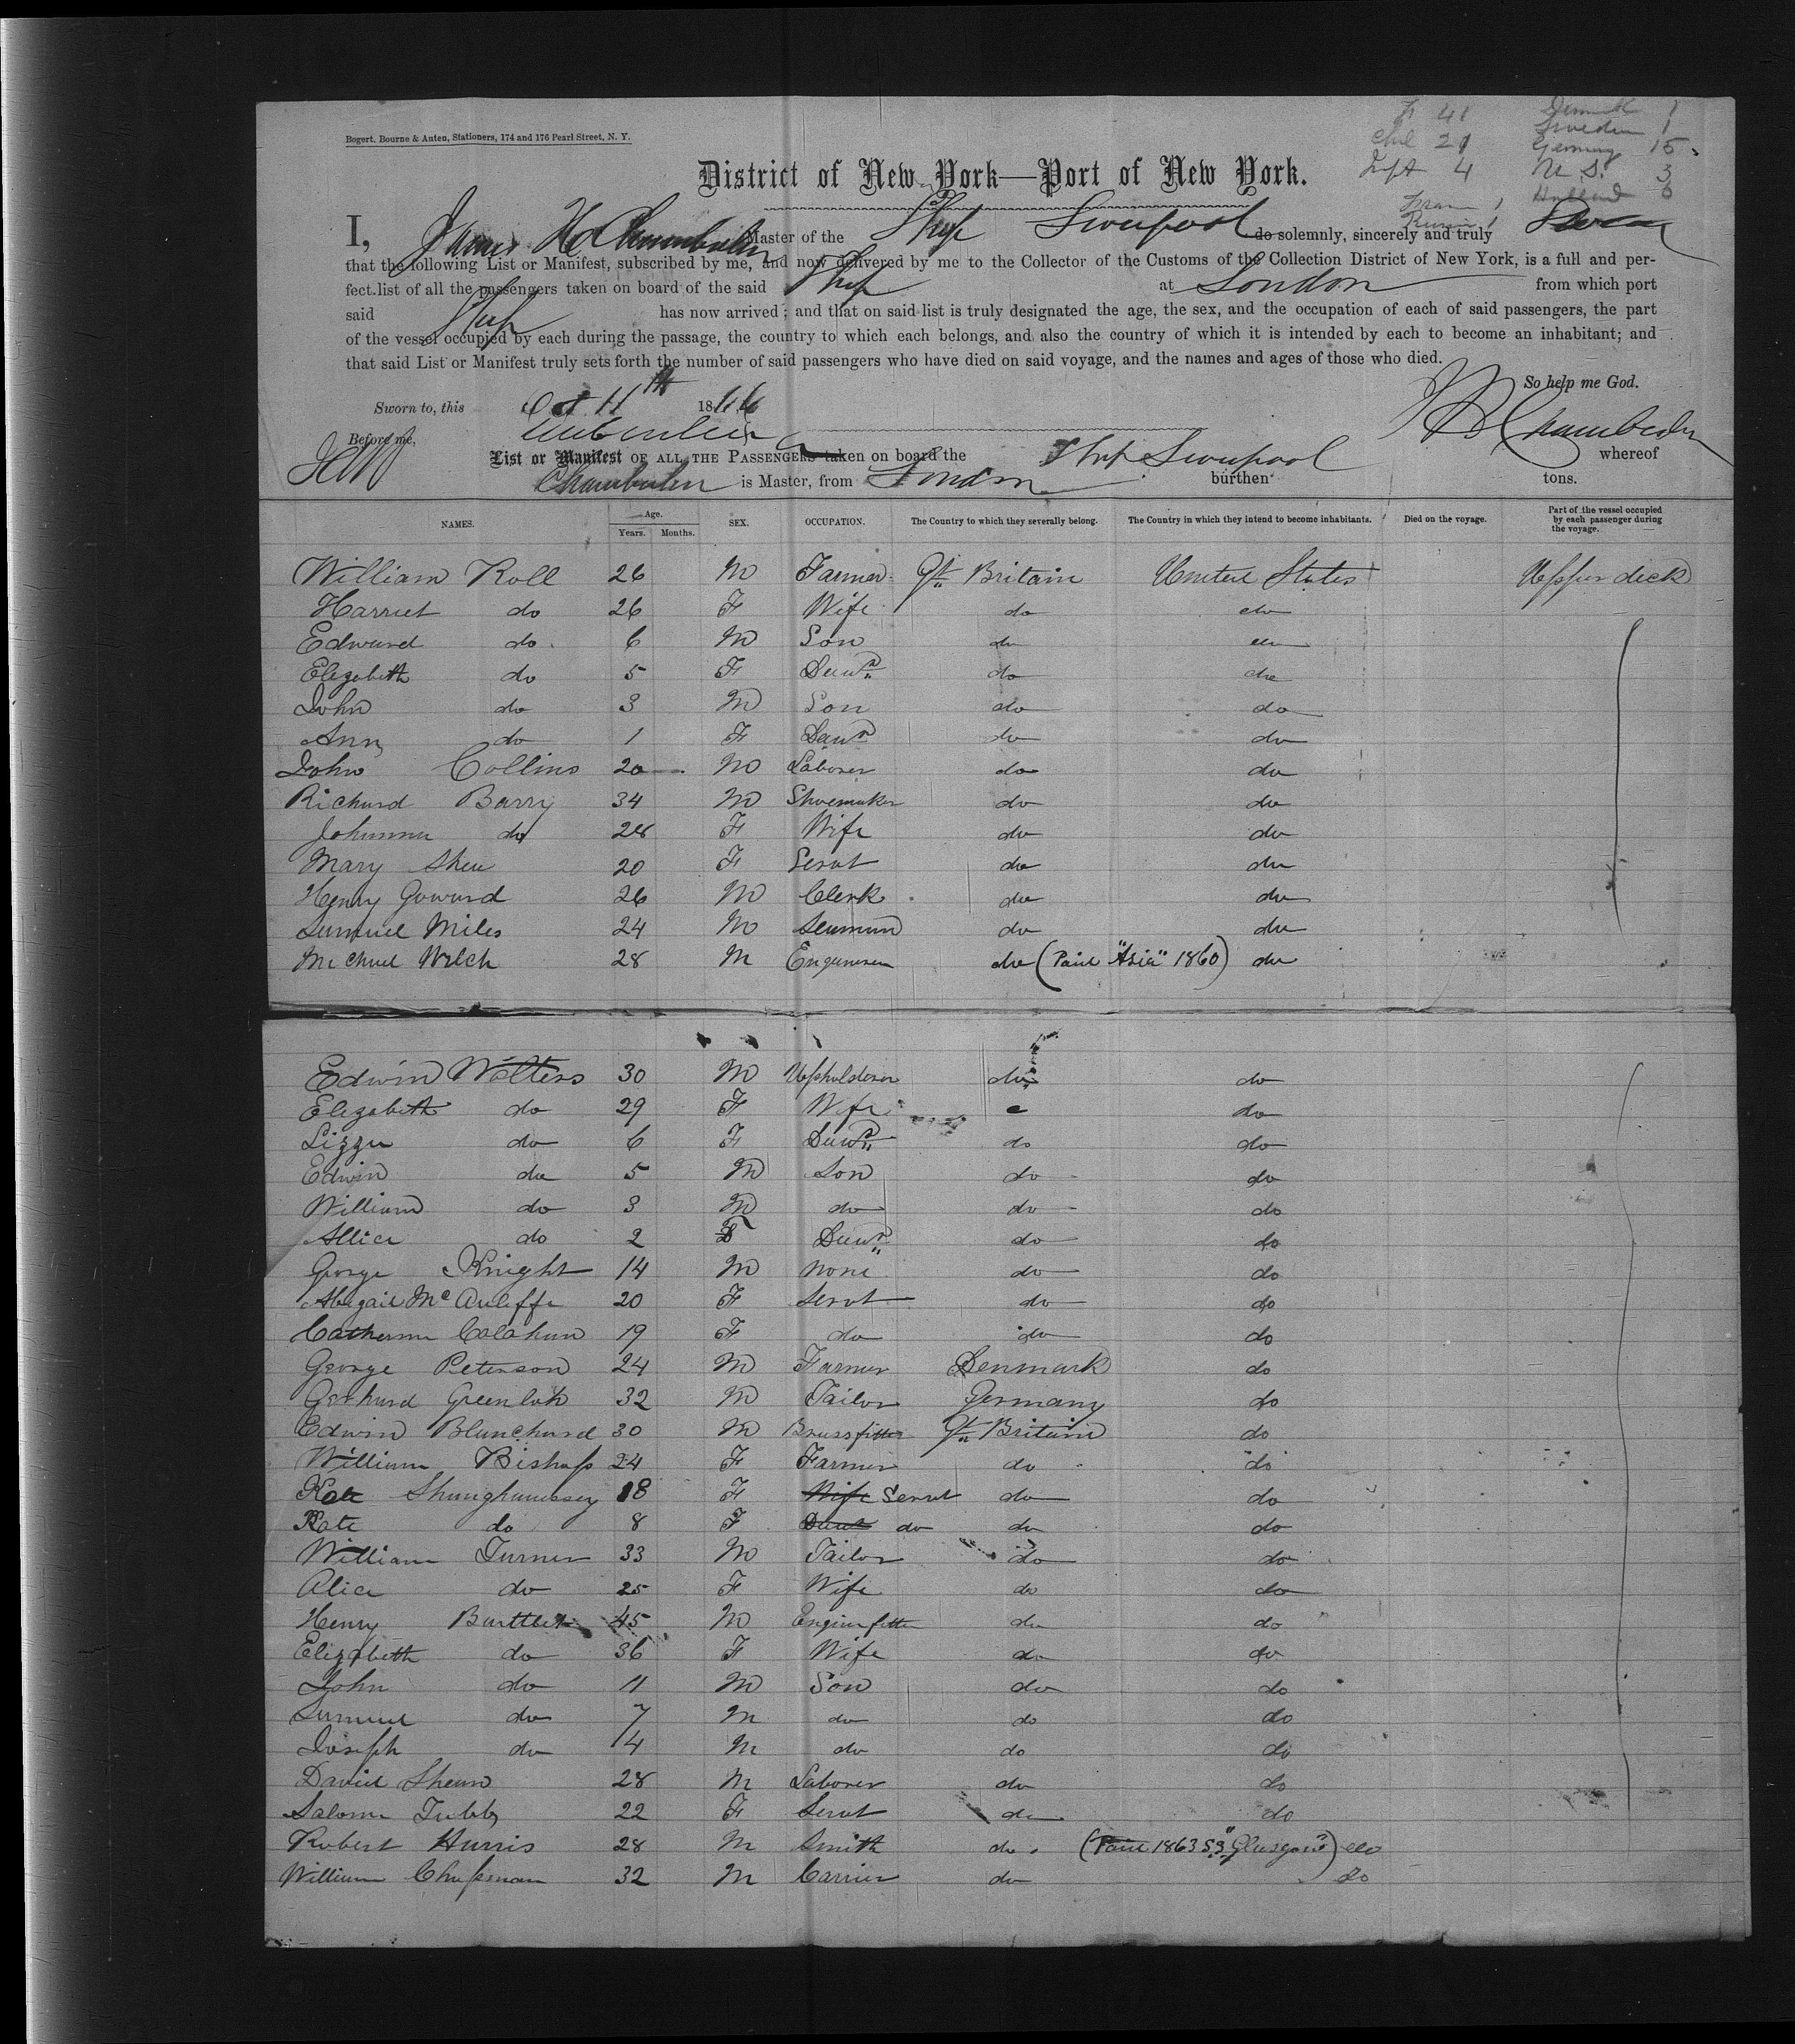 Bogert, Bourne & Auten, Stationers, 174 and 176 Pearl Street, N. Y.
F 41 Denmark 1
Chil 21 Sweden 1
Germany 15
Inft 4 U S. 3
Holland 6
Fran 1
Russia 1
District of New York—Port of New York.
I, James H Chamberlin Master of the Ship Liverpool do solemnly, sincerely and truly Swear
that the following List or Manifest, subscribed by me, and now delivered by me to the Collector of the Customs of the Collection District of New York, is a full and per-
fect list of all the passengers taken on board of the said Ship at London from which port
said Ship has now arrived; and that on said list is truly designated the age, the sex, and the occupation of each of said passengers, the part
of the vessel occupied by each during the passage, the country to which each belongs, and also the country of which it is intended by each to become an inhabitant; and
that said List or Manifest truly sets forth the number of said passengers who have died on said voyage, and the names and ages of those who died.
So help me God.
Sworn to, this Oct 11th 1866
Chamberlin
Before me,
List or Manifest OF ALL THE PASSENGERS taken on board the Ship Liverpool whereof
Chamberlin is Master, from London burthen tons.
NAMES. Age. Years. Months. SEX. OCCUPATION. The Country to which they severally belong. The Country in which they intend to become inhabitants. Died on the voyage. Part of the vessel occupied by each passenger during the voyage.
William Roll 26 M Farmer Gt Britain United States Upper deck
Harriet do 26 F Wife do do
Edward do 6 M Son do do
Elizabeth do 5 F Dawr do do
John do 3 M Son do do
Ann do 1 F Dawr do do
John Collins 20 M Laborer do do
Richard Barry 34 M Shoemaker do do
Johanna do 28 F Wife do do
Mary Shea 20 F Servt do do
Henry Goward 26 M Clerk do do
Samuel Miles 24 M Seaman do do
Michael Welch 28 M Engineer do (Paid "Asia" 1860) do
Edwin Walters 30 M Upholsterer do do
Elizabeth do 29 F Wife do
Lizzie do 6 F Dawr do do
Edwin do 5 M Son do do
William do 3 M do do do
Allice do 2 F Dawr do do
George Knight 14 M none do do
Abigail McAuleffe 20 F Servt do do
Catherine Calahan 19 F do do do
George Peterson 24 M Farmer Denmark do
Gerhard Greenloh 32 M Tailor Germany do
Edwin Blanchard 30 M Brassfitter Gt Britain do
William Bishop 24 F Farmer do do
Kate Shaughnassey 18 F Wife Servt do do
Kate do 8 F Dawr do do do
William Turner 33 M Tailor do do
Alice do 25 F Wife do do
Henry Barttlett 45 M Enginefitter do do
Elizabeth do 36 F Wife do do
John do 11 M Son do do
Samuel do 7 M do do do
Joseph do 4 M do do do
David Shean 28 M Laborer do do
Salome Tubbs 22 F Servt do do
Robert Harris 28 M Smith do (Paid 1863 S.S. "Glasgow") do
William Chapman 32 M Carrier do do